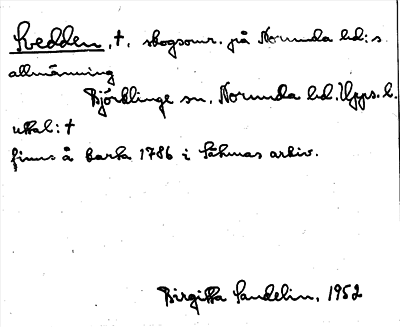 Svedden, †, skogsomr. på Norunda hd:s
allmänning
Björklinge sn, Norunda hd. Upps. l.
uttal: †
finns å karta 1786 i Säkmas arkiv.
Birgitta Sandelin, 1952